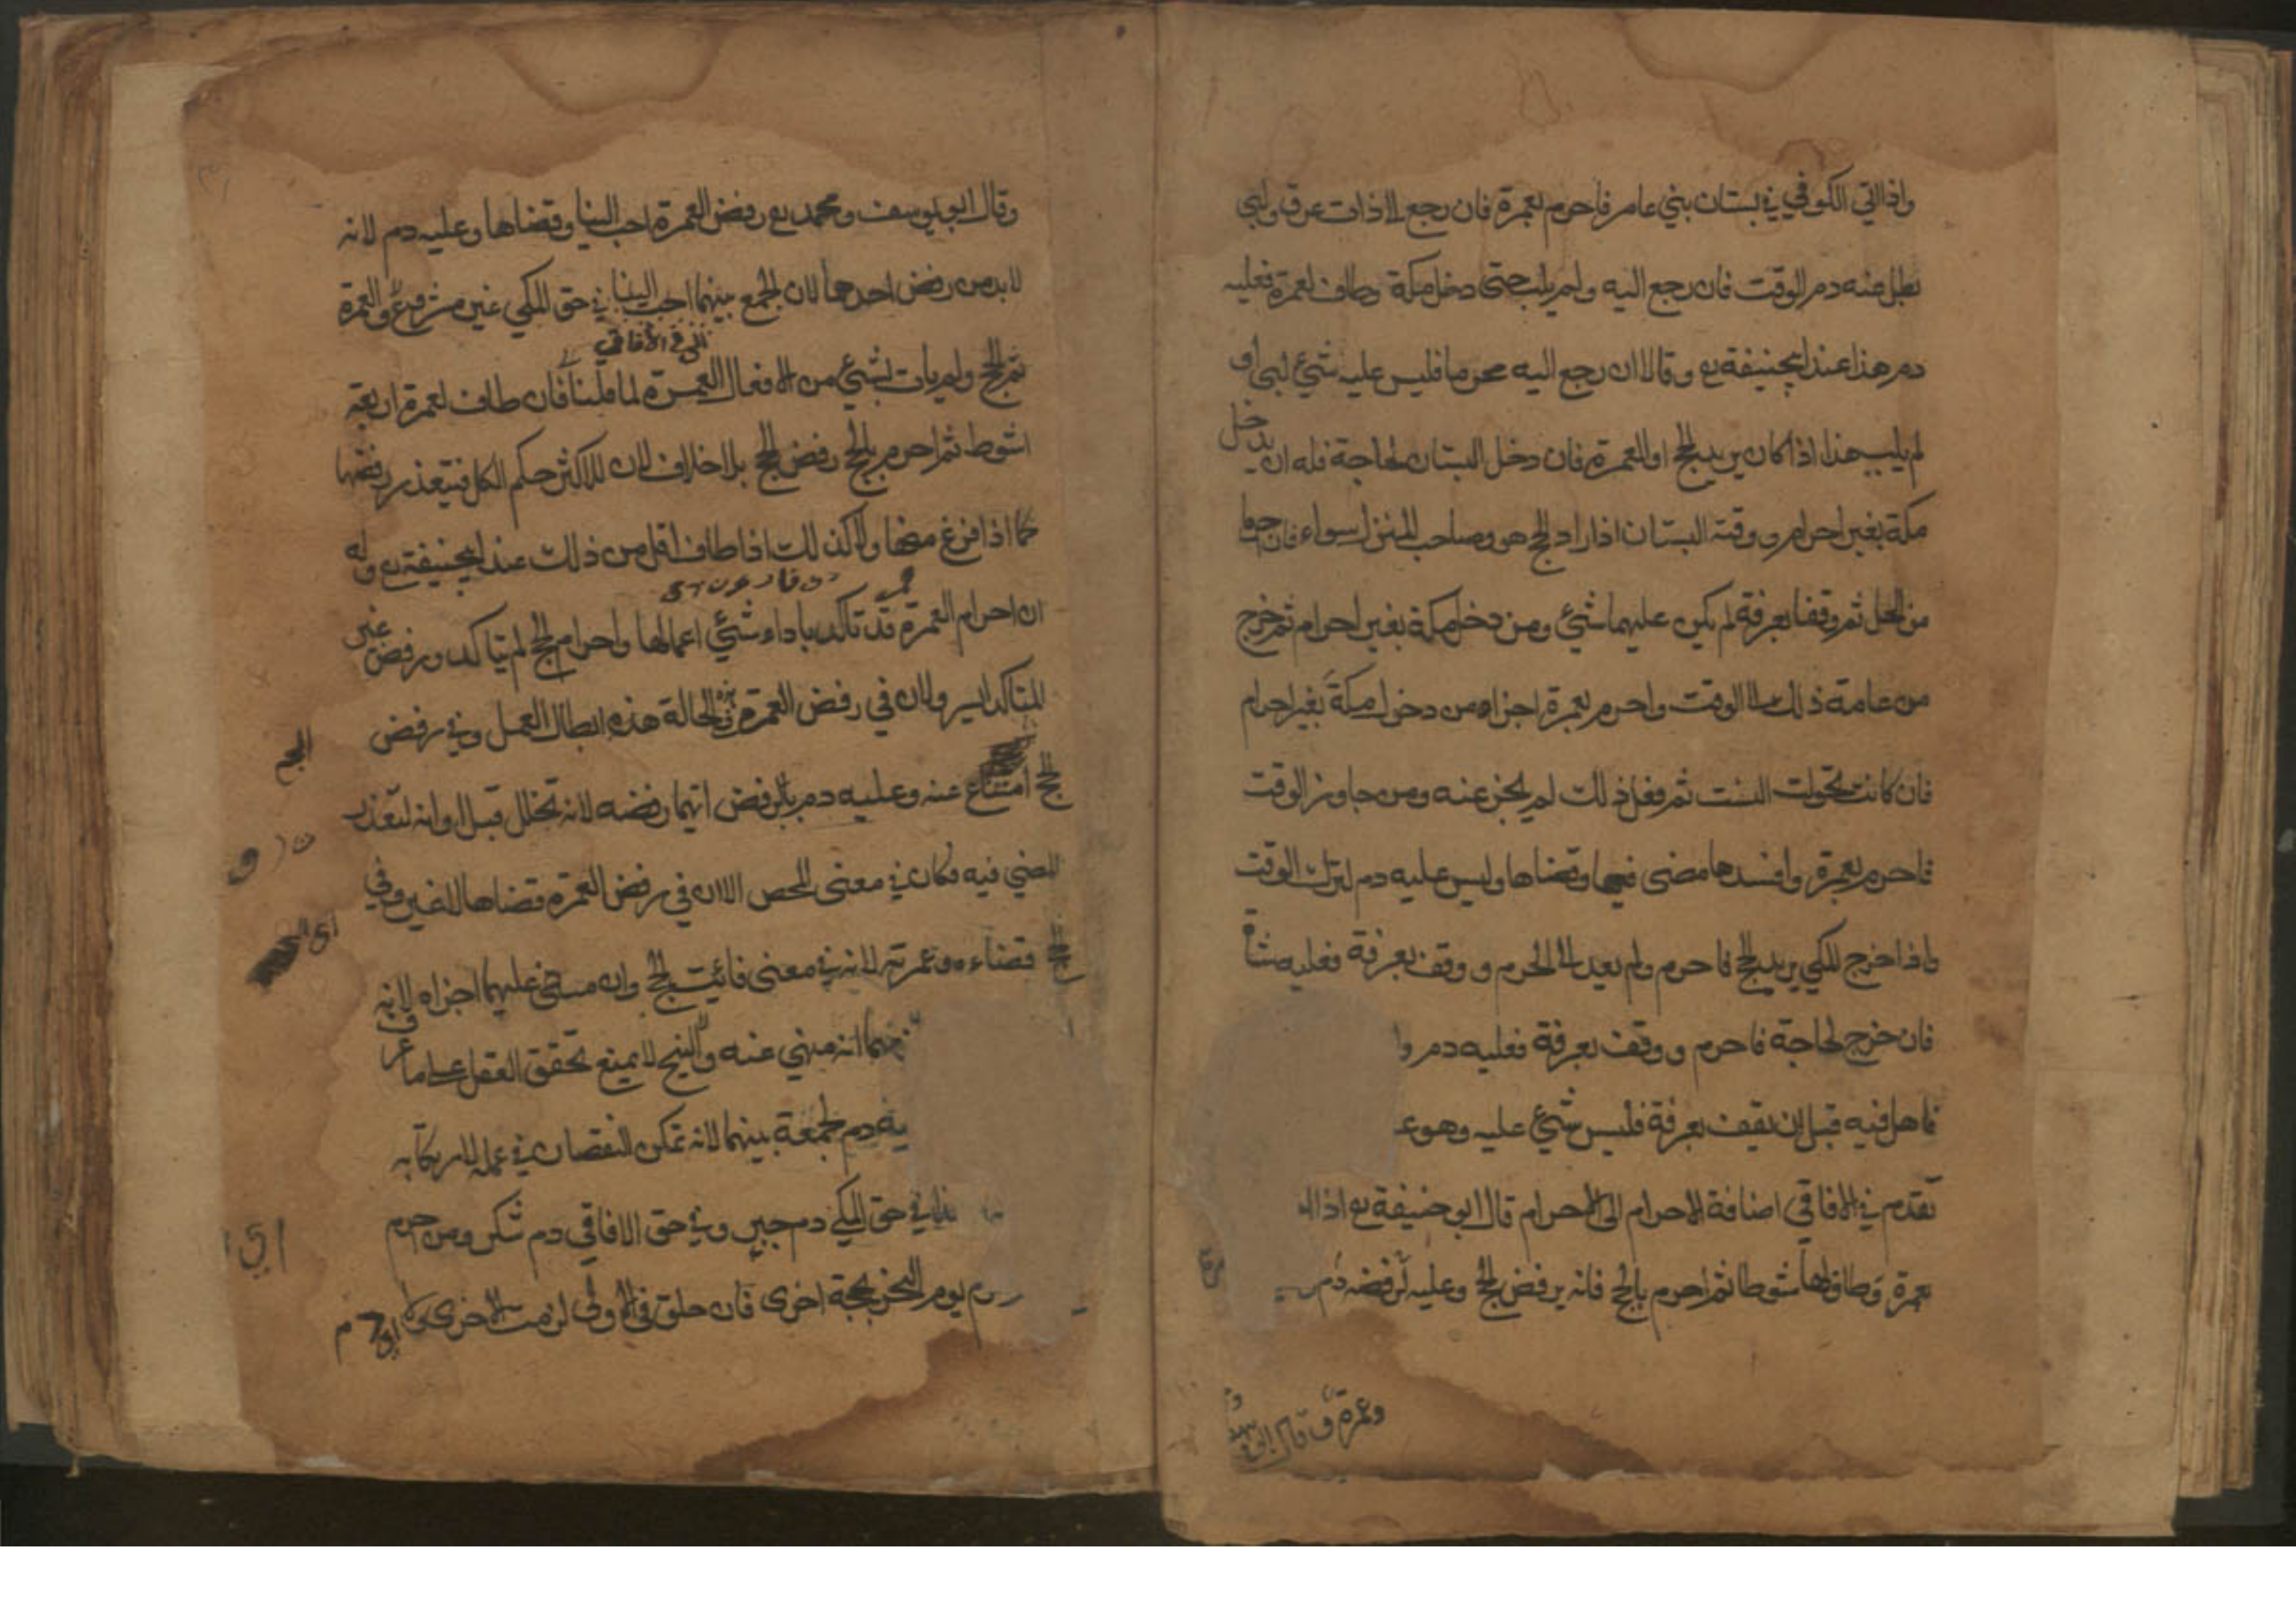 واذا اتي الكوفي في بستان بني عامر فاحرم بعمرة فان رجع الا ذات عرق ولبي
بطل عنه دم الوقت فان رجع اليه ولم يلب حتى دخل مكة وطاف لعمرة فعليه
دم هذا عند ابيحنيفة رح وقالا ان رجع اليه محرما فليس عليه شيئ لبي او
لم يلب هذا اذا كان يريد الحج او العمرة فان دخل البستان لحاجة فله ان يدخل
مكة بغير احرام ووقته البستان اذا اراد الحج هو وصاحب المنزل سواء فان احرما
من الحل ثم وقفا بعرفة لم يكن عليهما شيئ ومن دخل مكة بغير احرام ثم خرج
من عامة ذلك الا الوقت واحرم بعمرة اجزاه من دخول مكة بغير احرام
فان كانت تحولت السنت ثم فعل ذلك لم يجز عنه ومن جاوز الوقت
فاحرم بعمرة وافسدها مضى فيها وقضاها وليس عليه دم لترك الوقت
واذا خرج المكي يريد الحج فاحرم ولم يعد الا الحرم ووقف بعرفة فعليه شاة
فان خرج لحاجة فاحرم ووقف بعرفة فعليه دم
فاهل فيه قبل ان يقف بعرفة فليس شيئ عليه وهو
تقدم في الافاقي اضافة الاحرام الى الاحرام قال ابو حنيفة رح اذا
بعمرة وطاف لها شوطا ثم احرم بالحج فانه يرفض الحج وعليه لرفضه دم
وعمرة وقال ابو يوسف
وقال ابو يوسف ومحمد رح رفض العمرة احب الينا وقضاها وعليه دم لانه
لابد من رفض احدهما لان الجمع بينهما احب الينا في حق المكي غير مشروع والعمرة
في الافاقي
ثم الحج ولم يات بشيئ من الافعال العمرة لما قلنا فان طاف لعمرة اربعة
اشوط ثم احرم بالحج رفض الحج بلا خلاف لان للاكثر حكم الكل فتعذر رفضها
كما اذا فرغ منها ولا كذلك اذا طاف اقل من ذلك عند ابيحنيفة رح وله
ان احرام العمرة قد تاكد باداء شيئ اعمالها واحرام الحج لم يتاكد ورفض غير
المتاكد ايسر ولان في رفض العمرة في الحالة هذه ابطال العمل وفي رفض
الحج امتناع عنه وعليه دم بالرفض ايهما رفضه لانه تحلل قبل اوانه لتعذر
المضي فيه فكان في معنى المحصر الا ان في رفض العمرة قضاها لا غير وفي
الحج قضاءه وعمرته لانه في معنى فائت الحج وان مضى عليهما اجزاه لانه
انه منهي عنه والنهي لا يمنع تحقق الفعل على ما عرف
دم لجمعه بينهما لانه تمكن النقصان في عمله لارتكابه
في حق المكي دم جبر وفي حق الافاقي دم شكر ومن احرم
يوم النحر بحجة اخرى فان حلق في الاولى لزمت الاخرى